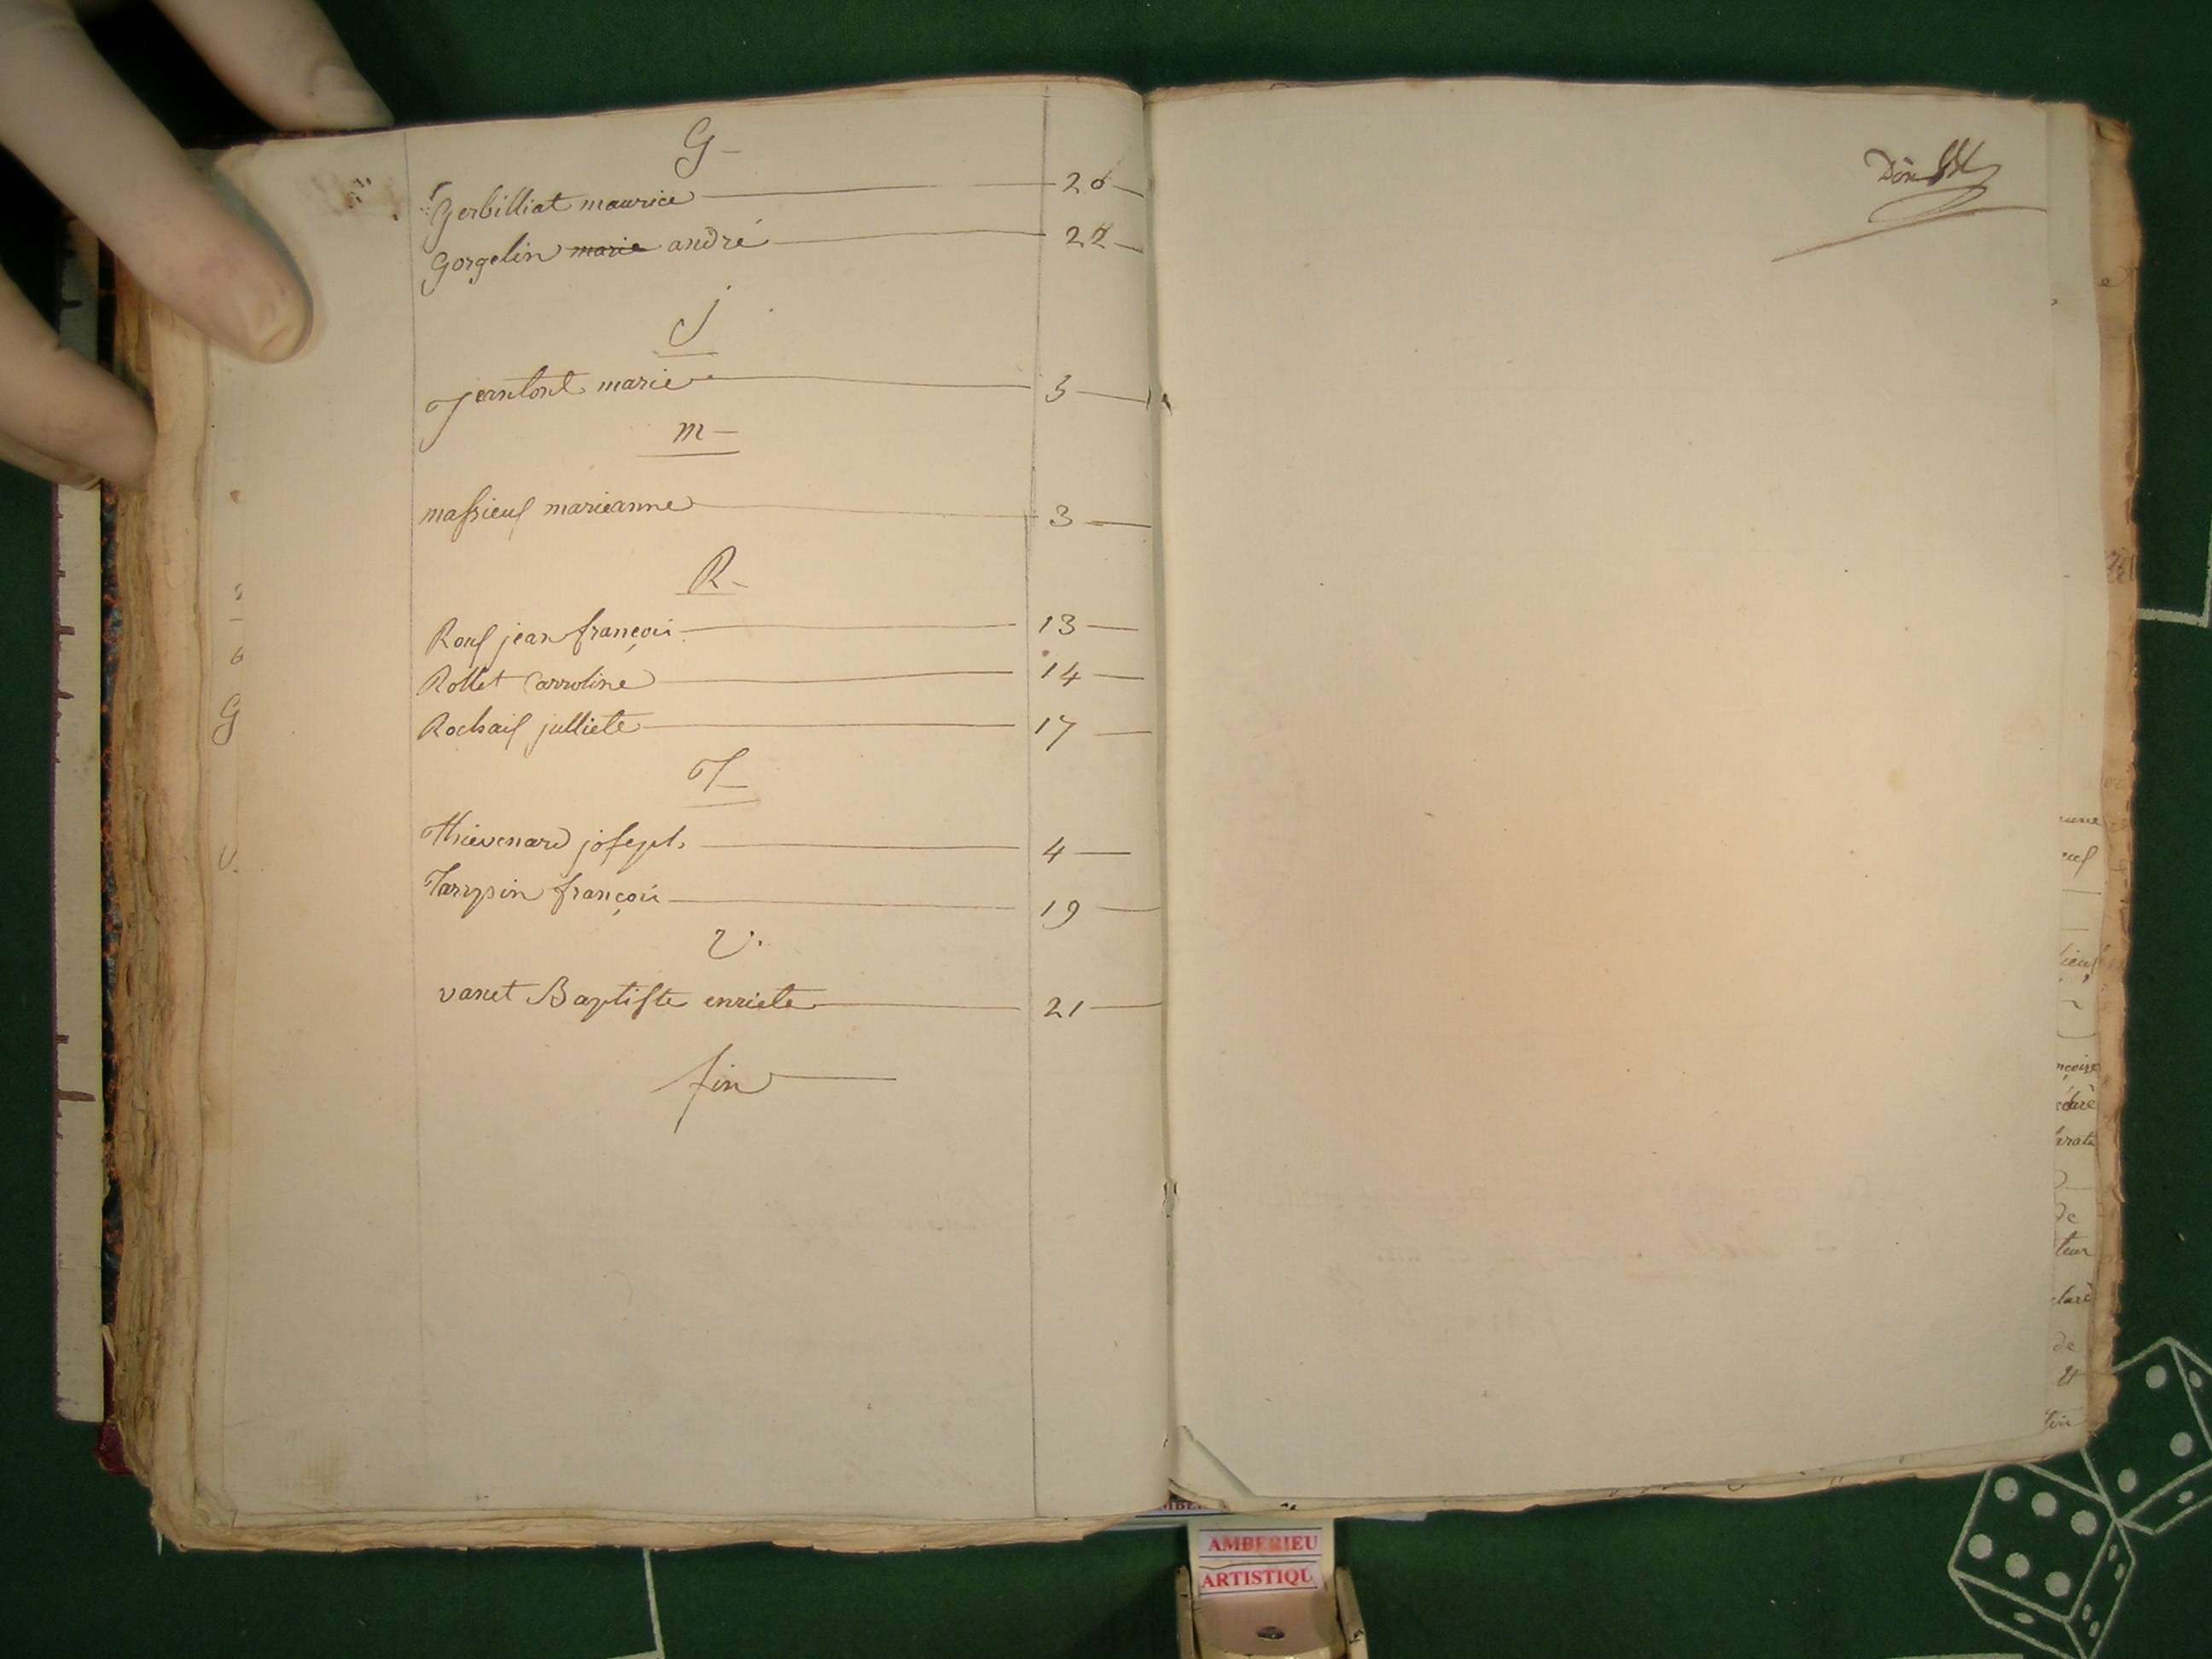 G -
Gerbilliat maurice 20
Gorgelin marie andré 22
J
Jeantont marie 3
m -
massieux marieanne 3
R -
Roux jean françois 13
Rollet Carroline 14
Rochaix julliete 17
T
Thievenard joseph 4
Tarrpin françois 19
V.
vanet Baptiste enriete 21
fin
G
V.
AMBERIEU
ARTISTIQU